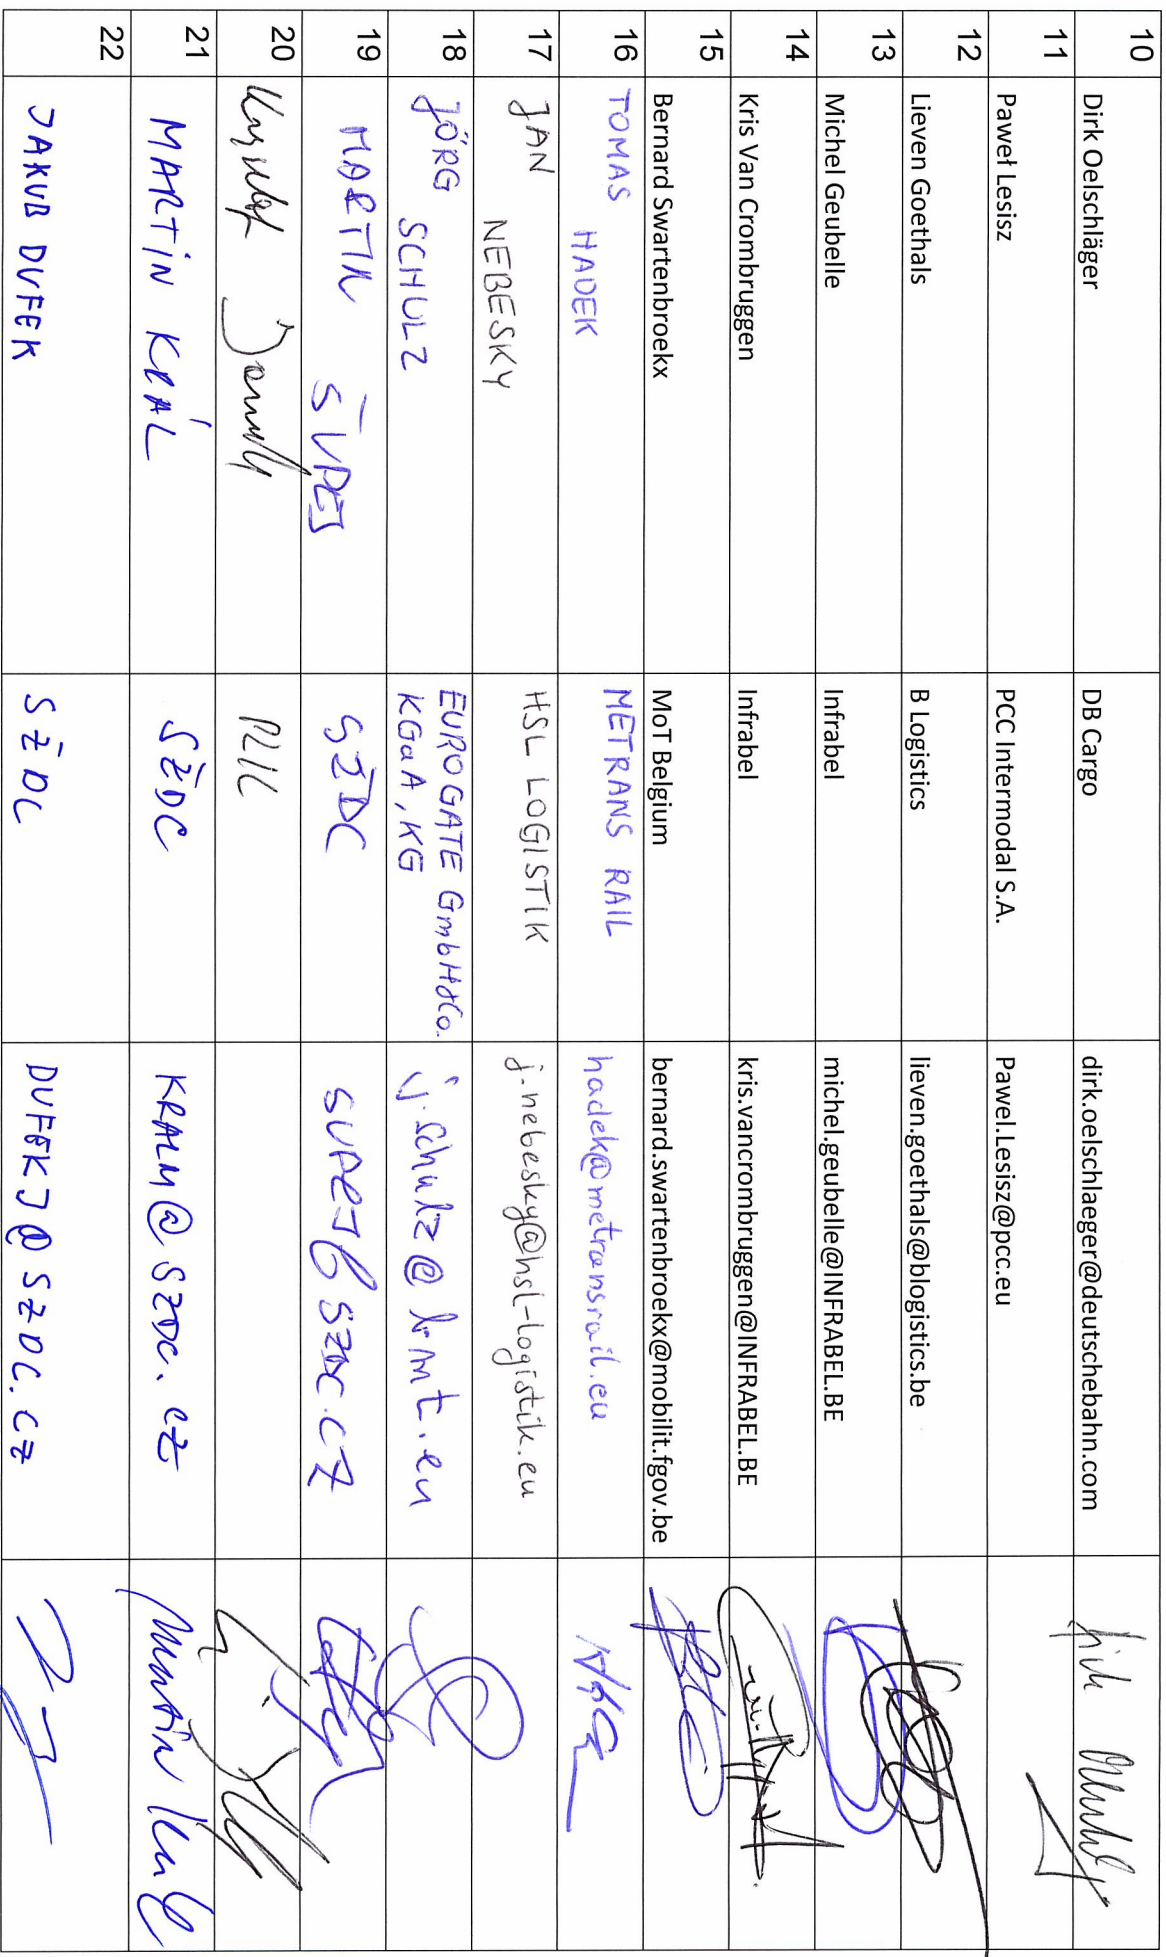 10 Dirk Oelschläger DB Cargo dirk.oelschlaeger@deutschebahn.com
11 Paweł Lesisz PCC Intermodal S.A. Pawel.Lesisz@pcc.eu
12 Lieven Goethals B Logistics lieven.goethals@blogistics.be
13 Michel Geubelle Infrabel michel.geubelle@INFRABEL.BE
14 Kris Van Crombruggen Infrabel kris.vancrombruggen@INFRABEL.BE
15 Bernard Swartenbroekx MoT Belgium bernard.swartenbroekx@mobilit.fgov.be
16 TOMAS HADEK METRANS RAIL hadek@metransrail.eu
17 JAN NEBESKY HSL LOGISTIK j.nebesky@hsl-logistik.eu
18 JÖRG SCHULZ EUROGATE GmbH&Co. j.schulz@
KGaA, KG
19 MARTIN SŽDC
20
21 MARTIN KRÁL SŽDC KRALM@SZDC.CZ Martin
22 JAKUB DUFEK SŽDC DUFEKJ@SZDC.CZ